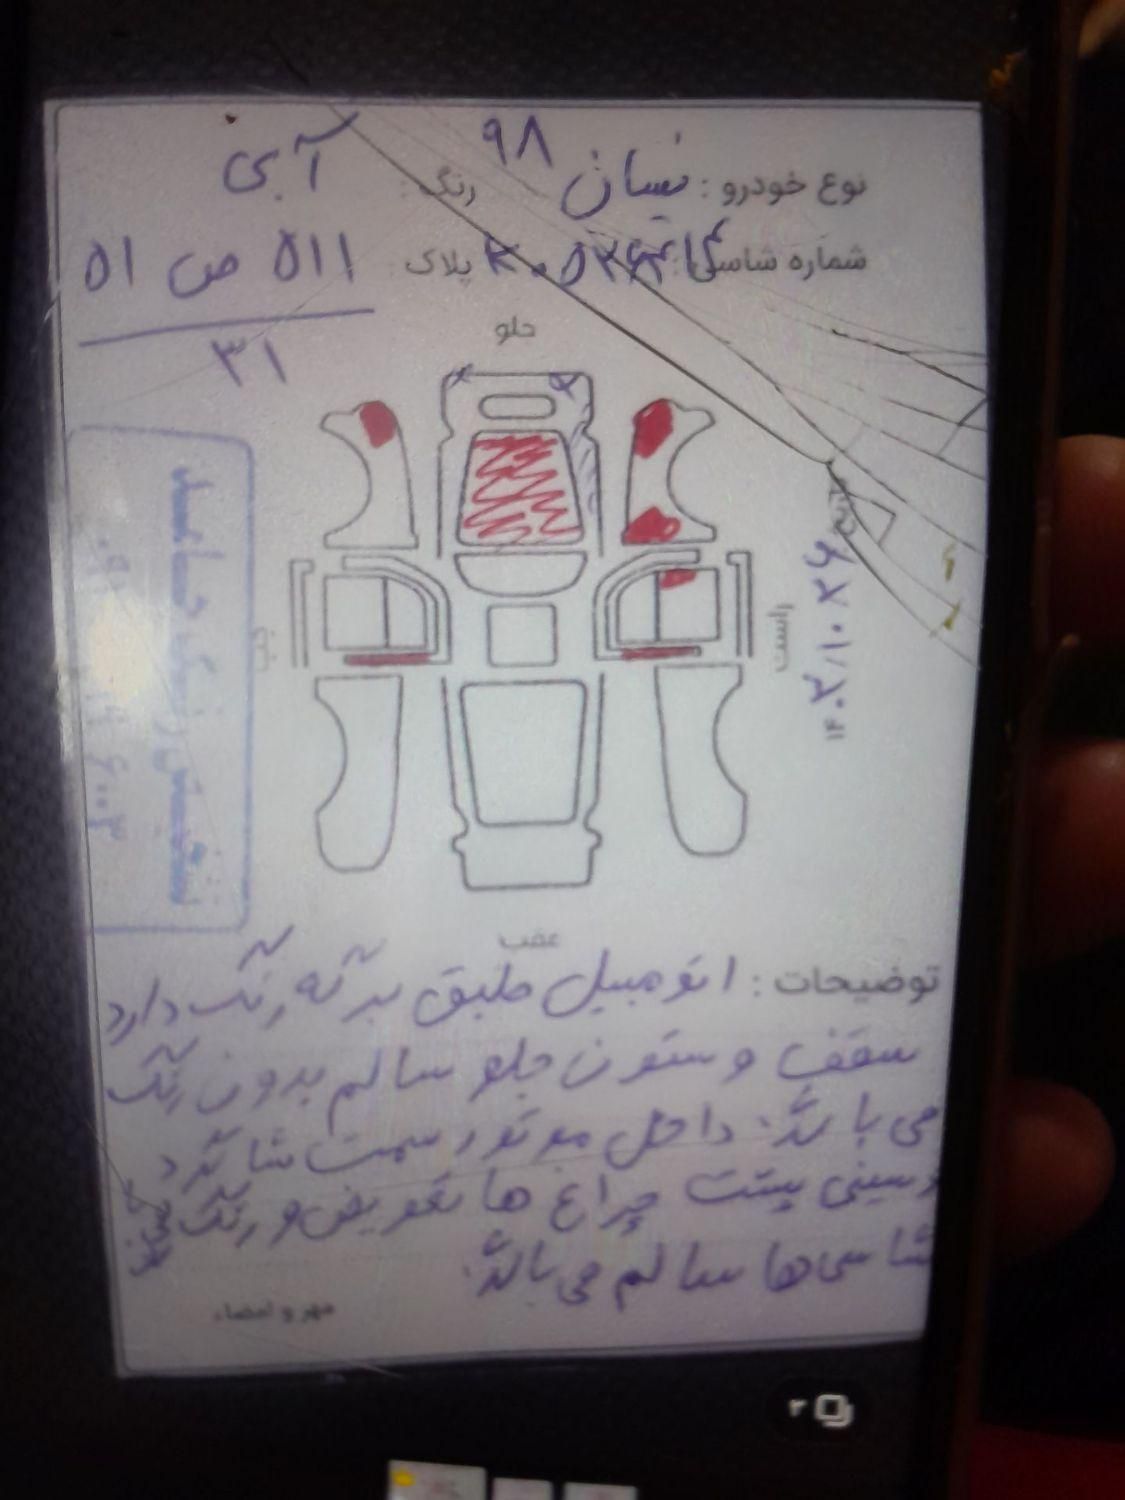 نوع خودرو : نیسان ۹۸ رنگ : آبی
شماره شاسی : پلاک ۵۱۱ ص ۵۱
۳۱
جلو
تاریخ
راست
عقب
توضیحات : اتومبیل طبق برگه رنگ دارد
سقف و ستون جلو سالم بدون رنگ
می باشد. داخل موتور سمت شاگرد
و سینی پشت چراغ ها تعویض و رنگ
شاسی ها سالم می باشد.
مهر و امضاء
۳